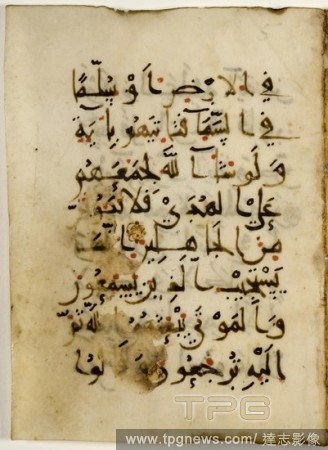 في الارض او سلما
في السما فتاتيهم باية
ولو شا الله لجمعهم
على الهدى فلا
من الجاهلين انما
يستجيب الذين يسمعون
والموتى يبعثهم الله ثم
اليه يرجعون وقالوا
TPG
www.tpgnews.com/ 達志影像